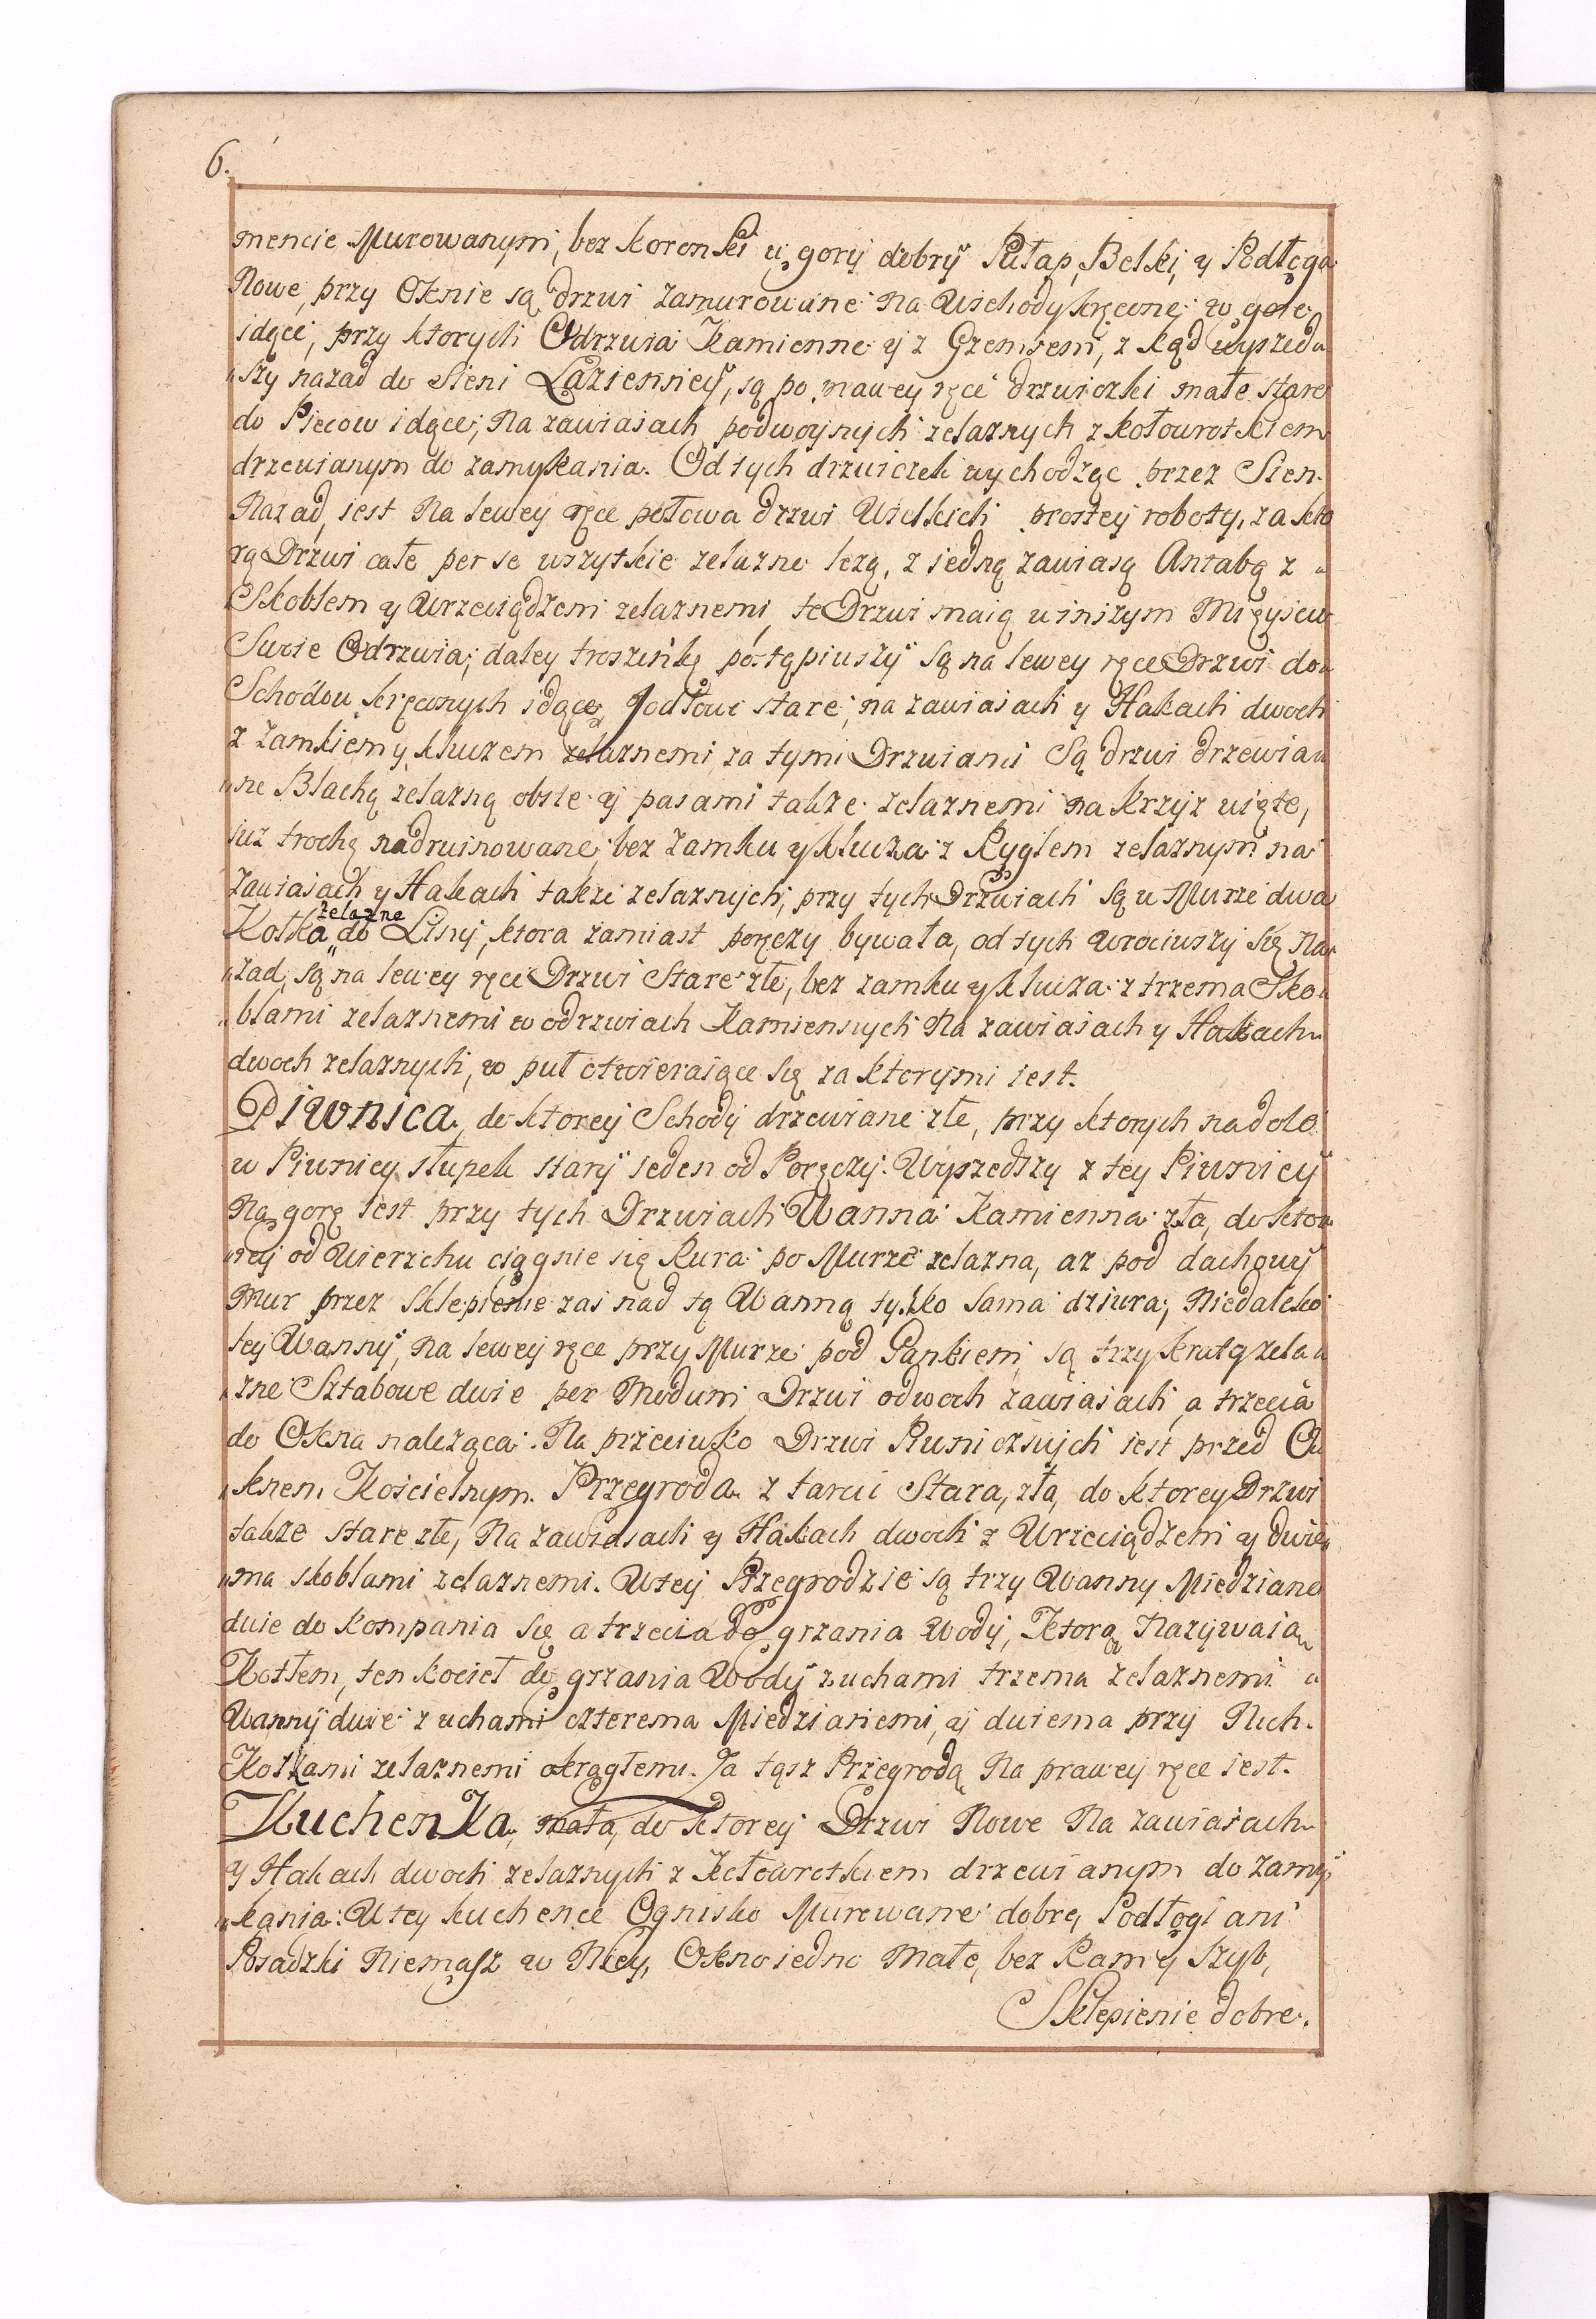 6.
mencie Murowanym, bez koronki u gory dobry Pułap, Belki, y Podłoga
Nowe, przy Oknie są drzwi zamurowane na Wschody kręcone w gore
idące, przy ktorych Odrzwia Kamienne y z Gzemsem, z kąd wyszed„
„szy nazad do Sieni Łazienney, są po prawey ręce drzwiczki małe stare
do Piecow idące, na zawiasach podwoynych zelaznych z kołowrotkiem
drzewianym do zamykania. Od tych drzwiczek wychodząc przez Sien
Nazad, iest Na lewey ręce połowa drzwi Wielkich prostey roboty, za kto
rą Drzwi całe per se wszytkie zelazne lezą, z iedną zawiasą Antabą z „
Skoblem y Wrzeciądzem zelaznemi, te Drzwi maią w inszym Mieyscu
Swoie Odrzwia; daley troszeńkę postąpiwszy są na lewey ręce Drzwi do„
Schodow kręconych idące, Jodłowe stare, na zawiasach y Hakach dwoch
z zamkiem y kluczem zelaznemi, za tymi Drzwiami Są drzwi drzewia„
„ne Blachą zelazną obite y pasami takze zelaznemi na krzyz uięte,
iuz trochę nadruinowane, bez zamku y klucza z Ryglem zelaznym na
zawiasach y Hakach takze zelaznych, przy tych Drzwiach są w Murze dwa
zelazne
Kołka do Liny, ktora zamiast poręczy bywała, od tych wrociwszy się Na„
„zad, są na lewey ręce Drzwi Stare złe, bez zamku y klucza z trzema Sko„
„blami zelaznemi w odrzwiach Kamiennych Na zawiasach y Hakach
dwoch zelaznych, w puł otwieraiące się za ktorymi iest.
Piwnica, do ktorey Schody drzewiane złe, przy ktorych na dole
w Piwnicy słupek stary ieden od Poręczy. Wyszedszy z tey Piwnicy
Na gorę iest przy tych Drzwiach Wanna Kamienna zła, do kto„
„rey od Wierzchu ciągnie się Rura po Murze zelazna, az pod dachowy
Mur przez Sklepienie zas nad tą Wanną tylko sama dziura, Niedaleko
tey Wanny, na lewey ręce przy Murze pod Gankiem są trzy kraty zela„
„zne Sztabowe dwie per Modum Drzwi o dwoch zawiasach, a trzecia
do Okna naleząca. Na przeciwko Drzwi Piwnicznych iest przed O„
„knem Kościelnym. Przegroda z tarcic Stara, zła, do ktorey Drzwi
takze stare złe, Na zawiasach y Hakach dwoch z Wrzeciądzem y dwie„
„ma skoblami zelaznemi. W tey Przegrodzie są trzy Wanny Miedziane
dwie do kompania się a trzecia do grzania Wody, Ktorą Nazywaią
Kotłem, ten kocieł do grzania Wody z uchami trzema zelaznemi a
Wanny dwie z uchami czterema Miedzianemi, y dwiema przy Nich
Kołkami zelaznemi okrągłemi. Za tąsz Przegrodą Na prawey ręce iest.
Kuchenka, mała, do ktorey Drzwi Nowe Na zawiasach
y Hakach dwoch zelaznych z Kołowrotkiem drzewianym do zamy„
„kania: W tey kuchence Ognisko Murowane dobre, Podłogi ani
Posadzki Niemasz w Niey, Okno iedno Małe, bez Ram y Szyb,
Sklepienie dobre.